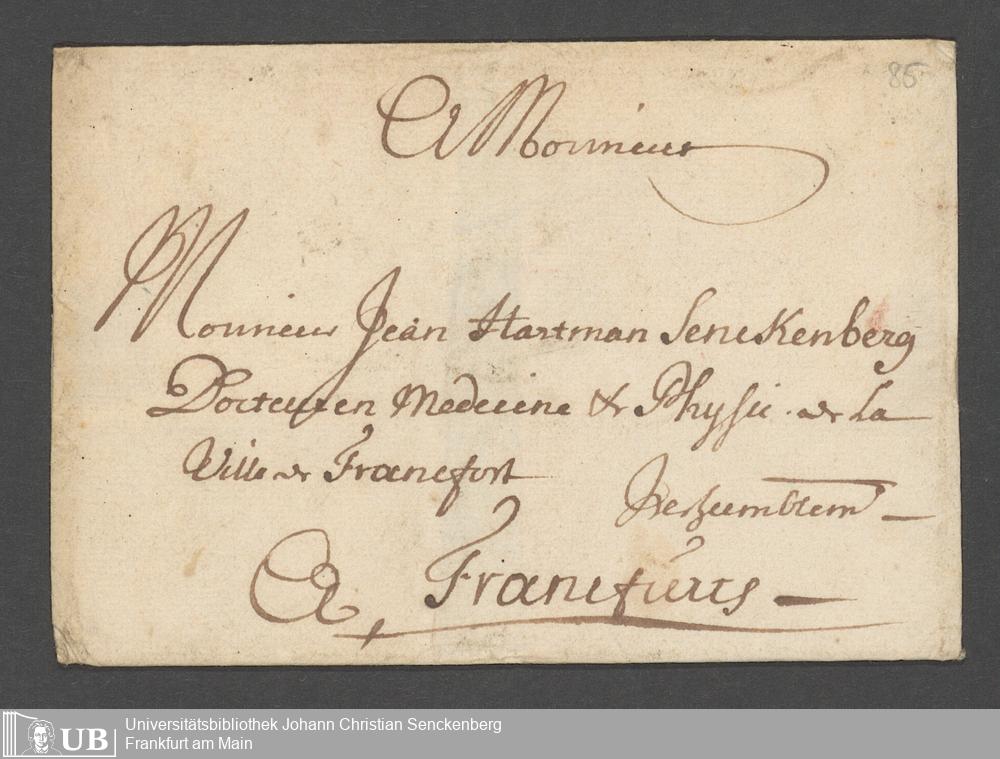 85
A Monsieur
Monsieur Jean Hartman Senckenberg
Docteur en Medecine & Physic. de La
Ville de Francfort
A Francfurt
UB Universitätsbibliothek Johann Christian Senckenberg
Frankfurt am Main